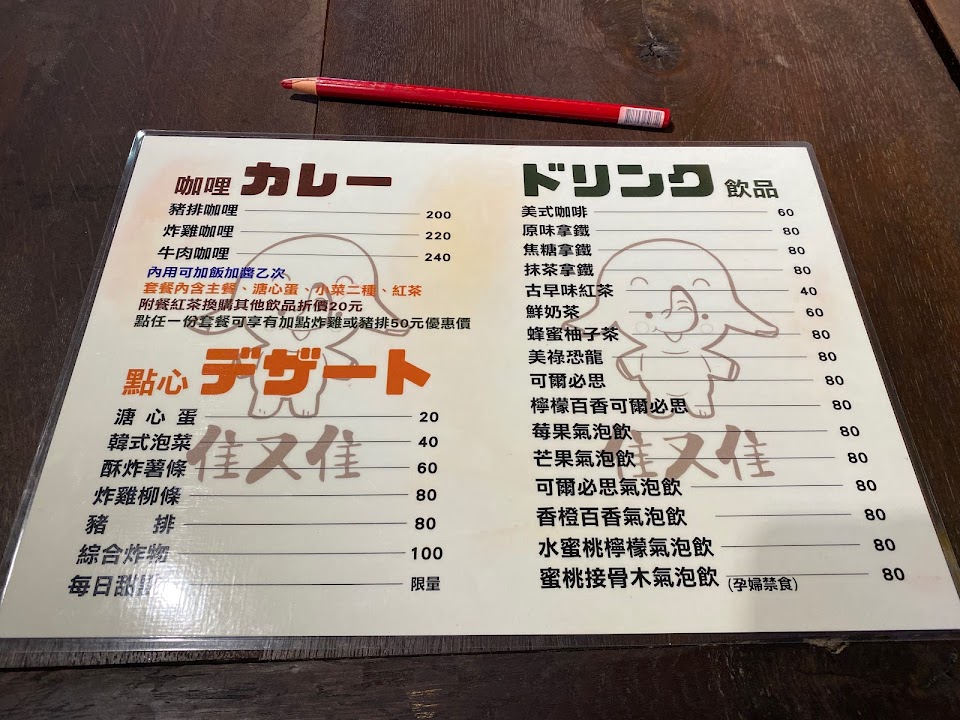 咖哩 カレー
豬排咖哩 200
炸雞咖哩 220
牛肉咖哩 240
內用可加飯加醬乙次
套餐內含主餐、溏心蛋、小菜二種、紅茶
附餐紅茶換購其他飲品折價20元
點任一份套餐可享有加點炸雞或豬排50元優惠價
點心 デザート
溏心蛋 20
韓式泡菜 40
酥炸薯條 60
炸雞柳條 80
豬排 80
綜合炸物 100
每日甜 限量
隹又隹
ドリンク 飲品
美式咖啡 60
原味拿鐵 80
焦糖拿鐵 80
抹茶拿鐵 80
古早味紅茶 40
鮮奶茶 60
蜂蜜柚子茶 80
美祿恐龍 80
可爾必思 80
檸檬百香可爾必思 80
莓果氣泡飲 80
芒果氣泡飲 80
可爾必思氣泡飲 80
香橙百香氣泡飲 80
水蜜桃檸檬氣泡飲 80
蜜桃接骨木氣泡飲 (孕婦禁食) 80
隹又隹